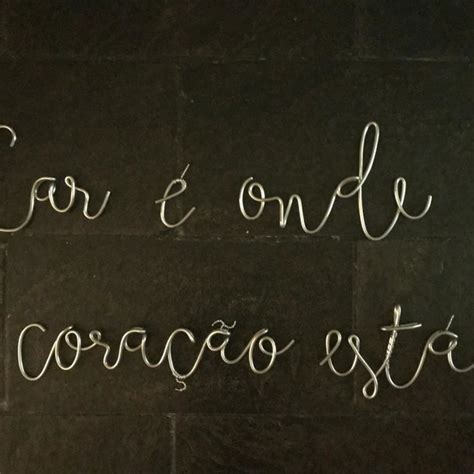 Lar é onde
coração está